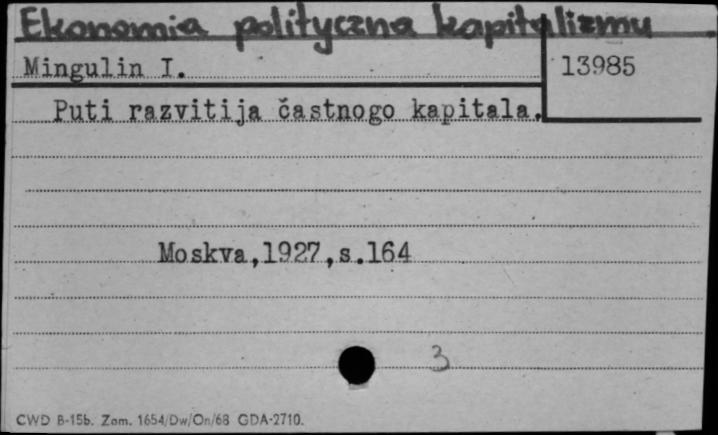 Ekonomia polityczna kapitalizmu
Mingulin I.
13985
Puti razvitija častnogo kapitala.
Moskva,1927,s.164
3
CWD B-15b. Zam. 1654/Dw/On/68 GDA-2710.